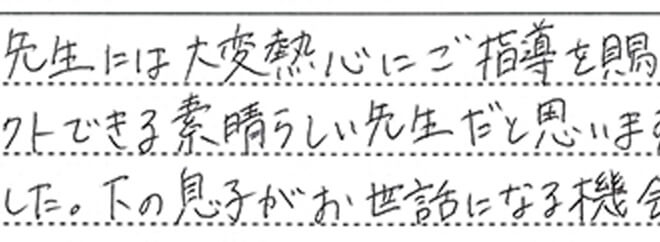 先生には大変熱心にご指導を賜
クトできる素晴らしい先生だと思いま
した。下の息子がお世話になる機会